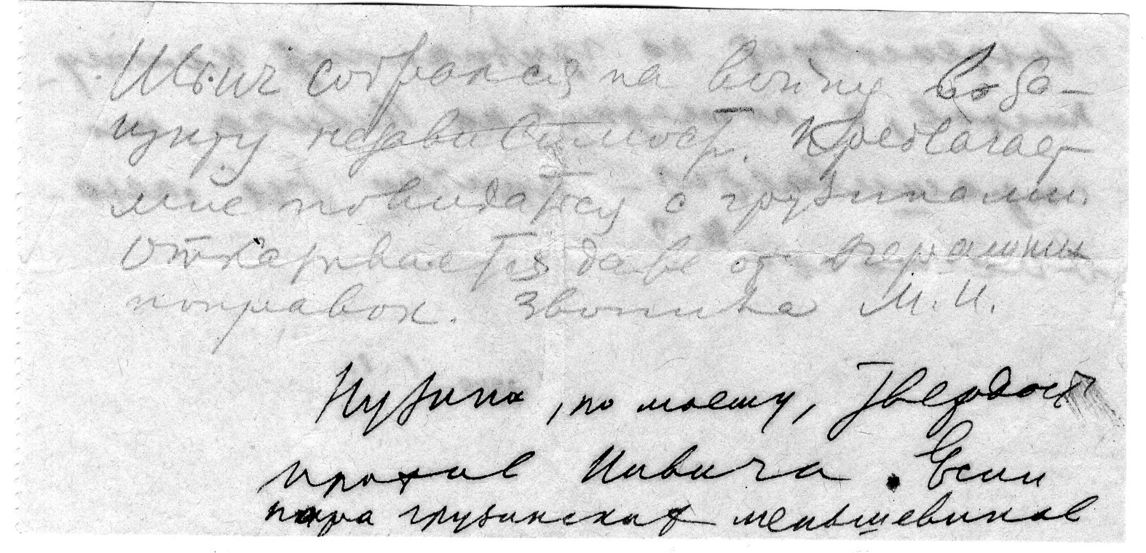 Ильич собрался на войну в за-
щиту независимост. Предлагает
мне повидаться с грузинами.
Открывается даже от вчерашних
поправок. Звонила М. И.
Нужна, по моему, твердость
против Ильича. Если
пара грузинских меньшевиков